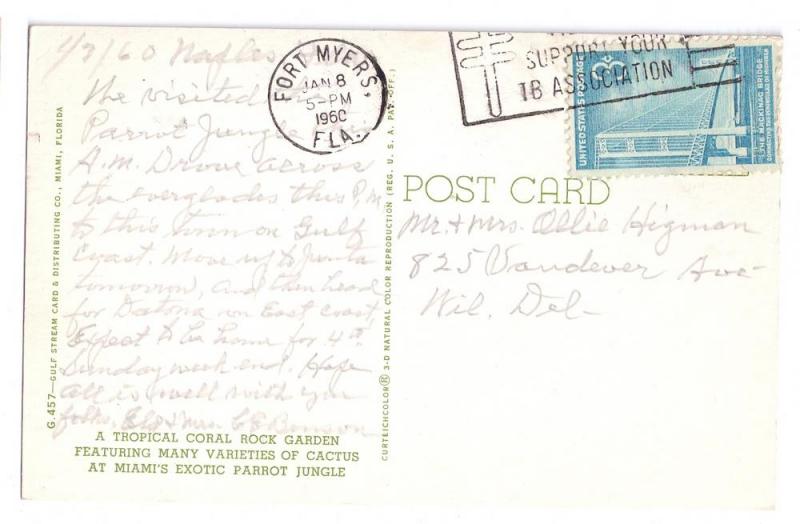 1/7/60 Naples
We visited
Parrot Jungle
A.M. Drove across
the everglades this P.M.
to this town on Gulf
Coast. Move up to Punta
tomorrow, and then head
for Datona on East coast.
Expect to be home for 4th
Sunday week end. Hope
all is well with you
folks. Eld & Mrs. C E Bunson
A TROPICAL CORAL ROCK GARDEN
FEATURING MANY VARIETIES OF CACTUS
AT MIAMI'S EXOTIC PARROT JUNGLE
G.457—GULF STREAM CARD & DISTRIBUTING CO., MIAMI, FLORIDA
CURTEICHCOLOR® 3-D NATURAL COLOR REPRODUCTION (REG. U. S. A. PAT. OFF.)
FORT MYERS,
JAN 8
5-PM
1960
FLA.
SUPPORT YOUR
TB ASSOCIATION
UNITED STATES POSTAGE
3¢
THE MACKINAC BRIDGE
CONNECTING THE PENINSULAS OF MICHIGAN
POST CARD
Mr. & Mrs. Ollie Higman
825 Vandever Ave
Wil. Del-